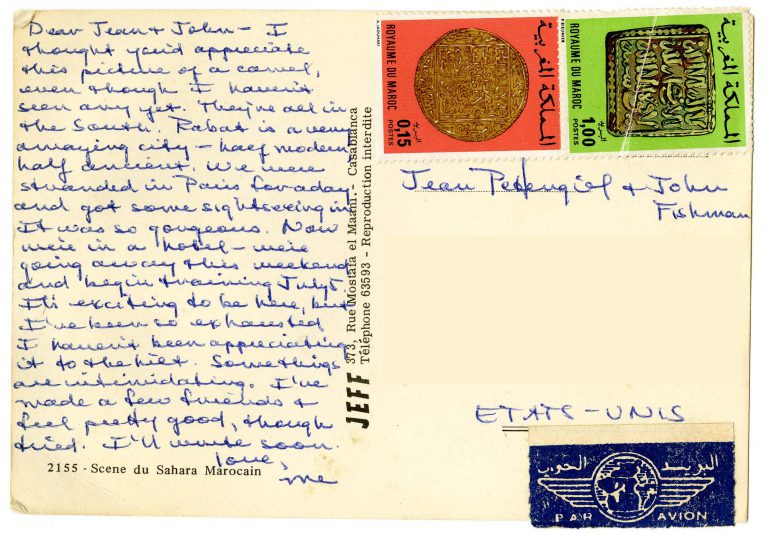 Dear Jean + John - I
thought you'd appreciate
this picture of a camel,
even though I haven't
seen any yet. They're all in
the South. Rabat is a very
amazing city - half modern
half ancient. We were
stranded in Paris for a day
and got some sightseeing in
It was so gorgeous. Now
we're in a hotel - we're
going away this weekend
and begin training July 5.
It's exciting to be here, but
I've been so exhausted
I haven't been appreciating
it to the hilt. Some things
are intimidating. I've
made a few friends &
feel pretty good, though
tired. I'll write soon.
love,
me
2155 - Scene du Sahara Marocain
JEFF
373, Rue Mostafa el Maani. - Casablanca
Téléphone 63593 - Reproduction interdite
ROYAUME DU MAROC
المملكة المغربية
0,15
POSTES
البريد
ROYAUME DU MAROC
المملكة المغربية
1,00
POSTES
البريد
Jean & John
Fishman
ETATS-UNIS
البريد الجوي
PAR AVION